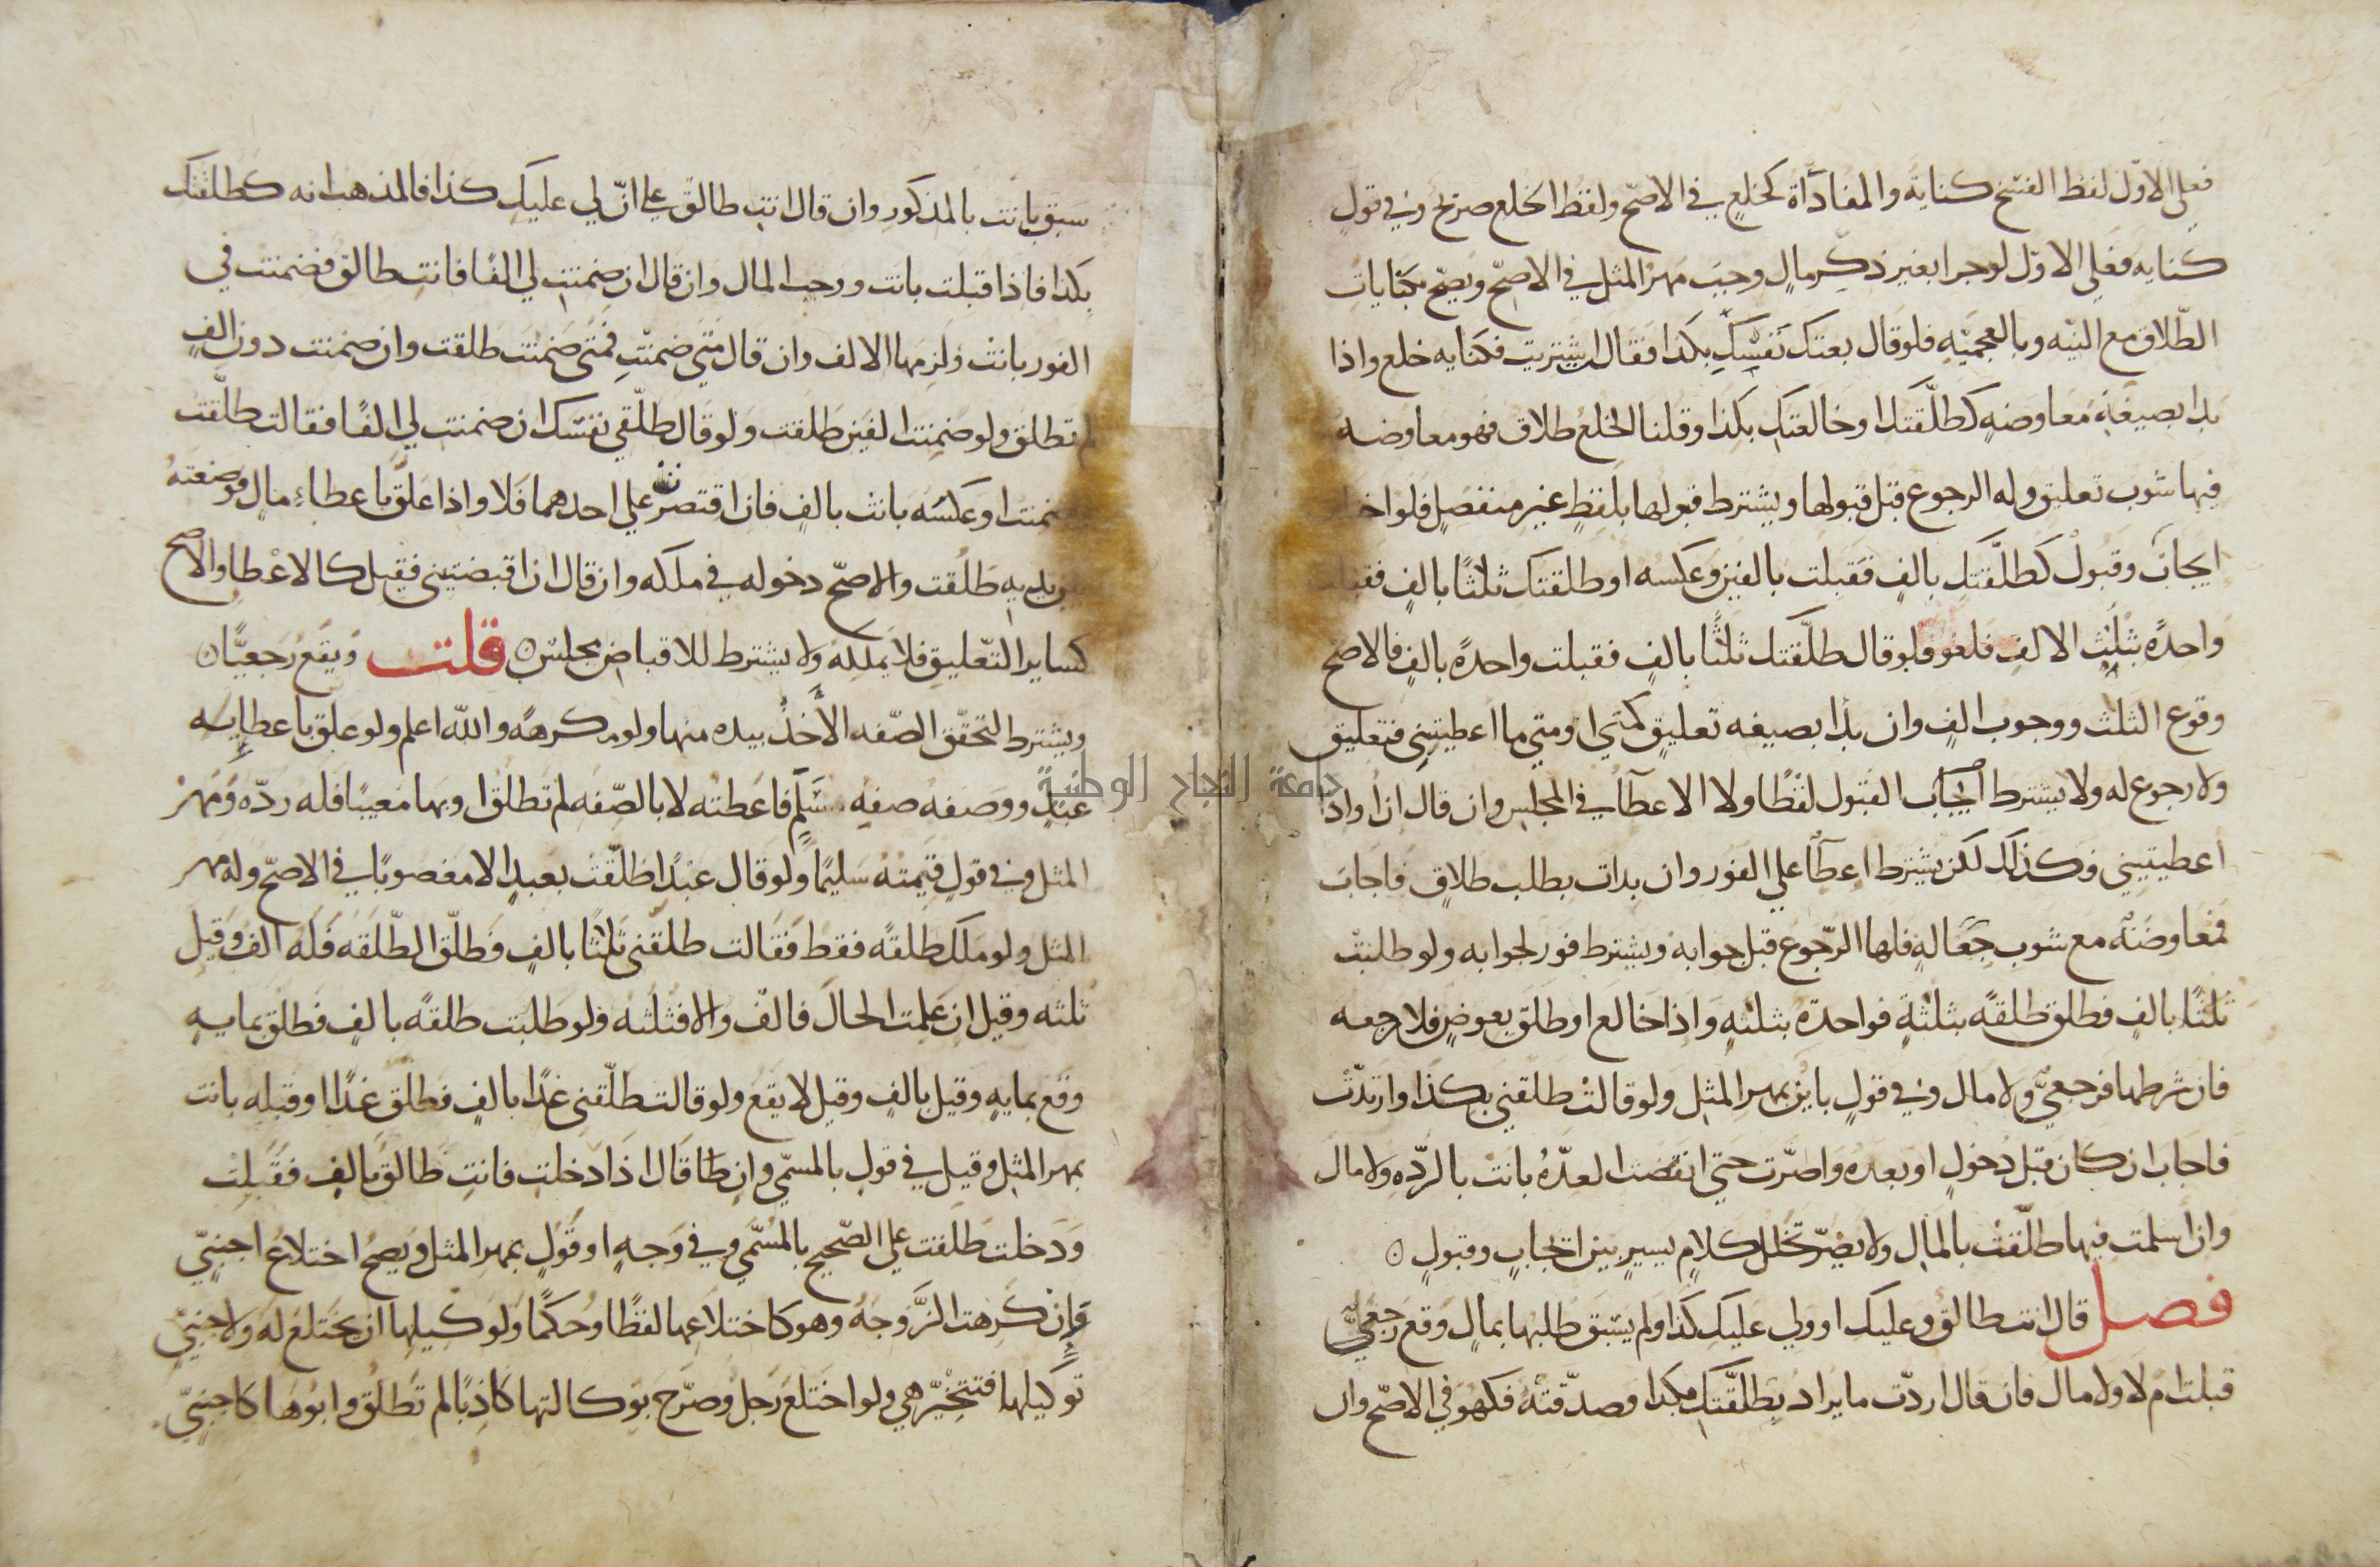 فعلى الاوّل لفظ الفسخ كناية والمفاداة كخلع في الاصحّ ولفظ الخلع صريح وفي قول
كنايه فعلى الاوّل لو جرا بغير ذكر مالٍ وجب مهر المثل في الاصحّ ويصحّ بكنايات
الطّلاق مع النيّه وبالعجميّه فلو قال بعتك نفسك بكذا فقال اشتريت فكنايه خلع واذا
بدا بصيغة معاوضةٍ كطلّقتك او خالعتك بكذا وقلنا الخلع طلاق فهو معاوضه
فيها شوب تعليق وله الرجوع قبل قبولها ويشترط قبولها بلفظٍ غير منفصلٍ فلو اختلف
ايجابٌ وقبولٌ كطلّقتك بالفٍ فقبلت بالفين وعكسه او طلقتك ثلثًا بالفٍ فقبلت
واحدةً بثلث الالف فلغو فلو قال طلّقتك ثلثًا بالفٍ فقبلت واحدةً بالفٍ فالاصح
وقوع الثلث ووجوب الفٍ وان بدا بصيغه تعليقٍ كمتى او متى ما اعطيتني فتعليق
ولا رجوع له ولا يشترط القبول لفظًا ولا الاعطآ في المجلس وان قال ان او اذا
اعطيتيني فكذلك لكن يشترط اعطآ على الفور وان بدات بطلب طلاقٍ فاجاب
فمعاوضةٌ مع شوب جعالةٍ فلها الرّجوع قبل جوابه ويشترط فور لجوابه ولو طلبت
ثلثًا بالفٍ فطلق طلقةً بثلثة فواحدة بثلثهٍ واذا خالع او طلّق بعوضٍ فلا رجعه
فان شرطها فرجعيٌّ ولا مال وفي قولٍ باين بمهر المثل ولو قالت طلقني بكذا وارتدّت
فاجاب ان كان قبل دخولٍ او بعده واصرّت حتى انقضت العدّة بانت بالردّه ولا مال
وان اسلمت فيها طلّقت بالمال ولا يضرّ تخلل كلامٍ يسيرٍ بين ايجابٍ وقبولٍ ۞
فصل قال انت طالق وعليك او ولي عليك كذا ولم يسبق طلبها بمالٍ وقع رجعيٌّ
قبلت ام لا ولا مال فان قال اردّت ما يراد بطلّقتك بكذا وصدّقته فكهو في الاصحّ وان
سبق بانت بالمذكور وان قال انت طالق على انّ لي عليك كذا فالمذهب انه كطلقتك
بكذا فاذا قبلت بانت ووجب المال وان قال ان ضمنت لي الفًا فانت طالق فضمنت في
الفور بانت ولزمها الالف وان قال متى ضمنت فمتى ضمنت طلقت وان ضمنت دون الفٍ
لم تطلق ولو ضمنت الفين طلقت ولو قال طلّقي نفسك ان ضمنت لي الفًا فقالت طلّقت
وضمنت او عكسه بانت بالفٍ فان اقتصرت على احدهما فلا واذا علّق باعطاء مالٍ فوضعته
بين يديه طلقت والاصحّ دخوله في ملكه وان قال ان اقبضتيني فقيل كالاعطا والاصح
كساير التّعليق فلا يملكه ولا يشترط للاقباض مجلس ۞ قلت ويقع رجعيًّا
ويشترط لتحقّق الصّفه الأخذ بيده منها ولو مكرهةً والله اعلم ولو علق باعطاء
عبدٍ ووصفه صفة سلم فاعطته لا بالصّفه لم تطلق او بها معيبًا فله ردّه ومهر
المثل وفي قول قيمته سليمًا ولو قال عبدًا طلّقت بعبدٍ الا مغصوبًا في الاصحّ وله مهر
المثل ولو ملك طلقةً فقط فقالت طلقني ثلثًا بالفٍ فطلّق الطّلقه فله الفٌ وقيل
ثلثه وقيل ان علمت الحال فالف والا فثلثه ولو طلبت طلقةً بالفٍ فطلق بمايه
وقع بمايهٍ وقيل بالفٍ وقيل لا يقع ولو قالت طلّقني غدًا بالفٍ فطلّق غدًا او قبله بانت
بمهر المثل وقيل في قولٍ بالمسمّى وان قال اذا دخلت فانتِ طالق بالفٍ فقبلت
ودخلت طلقت على الصّحيح بالمسمّى وفي وجهٍ او قولٍ بمهر المثل ويصحّ اختلاع اجنبيّ
وان كرهت الزّوجة وهو كاختلاعها لفظًا وحكمًا ولوكيلها ان يختلع له ولاجنبيّ
توكيلها فتتخيّر هي ولو اختلع رجلٌ وصرّح بوكالتها كاذبًا لم تطلق وابوها كاجنبيّ
جامعة النجاح الوطنية